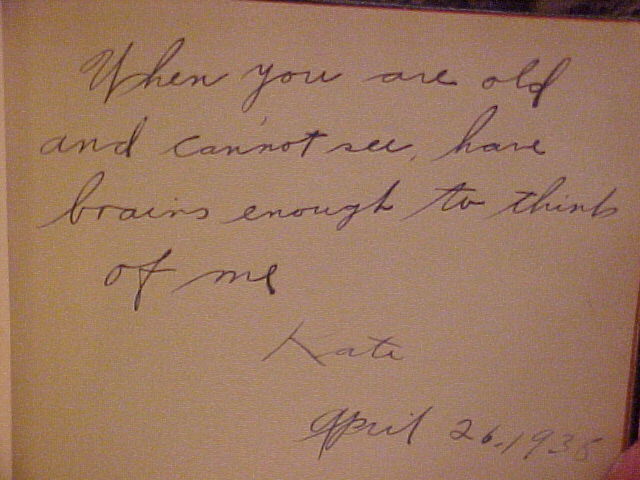 When you are old
and cannot see, have
brains enough to think
of me
Kate
April 26, 1935